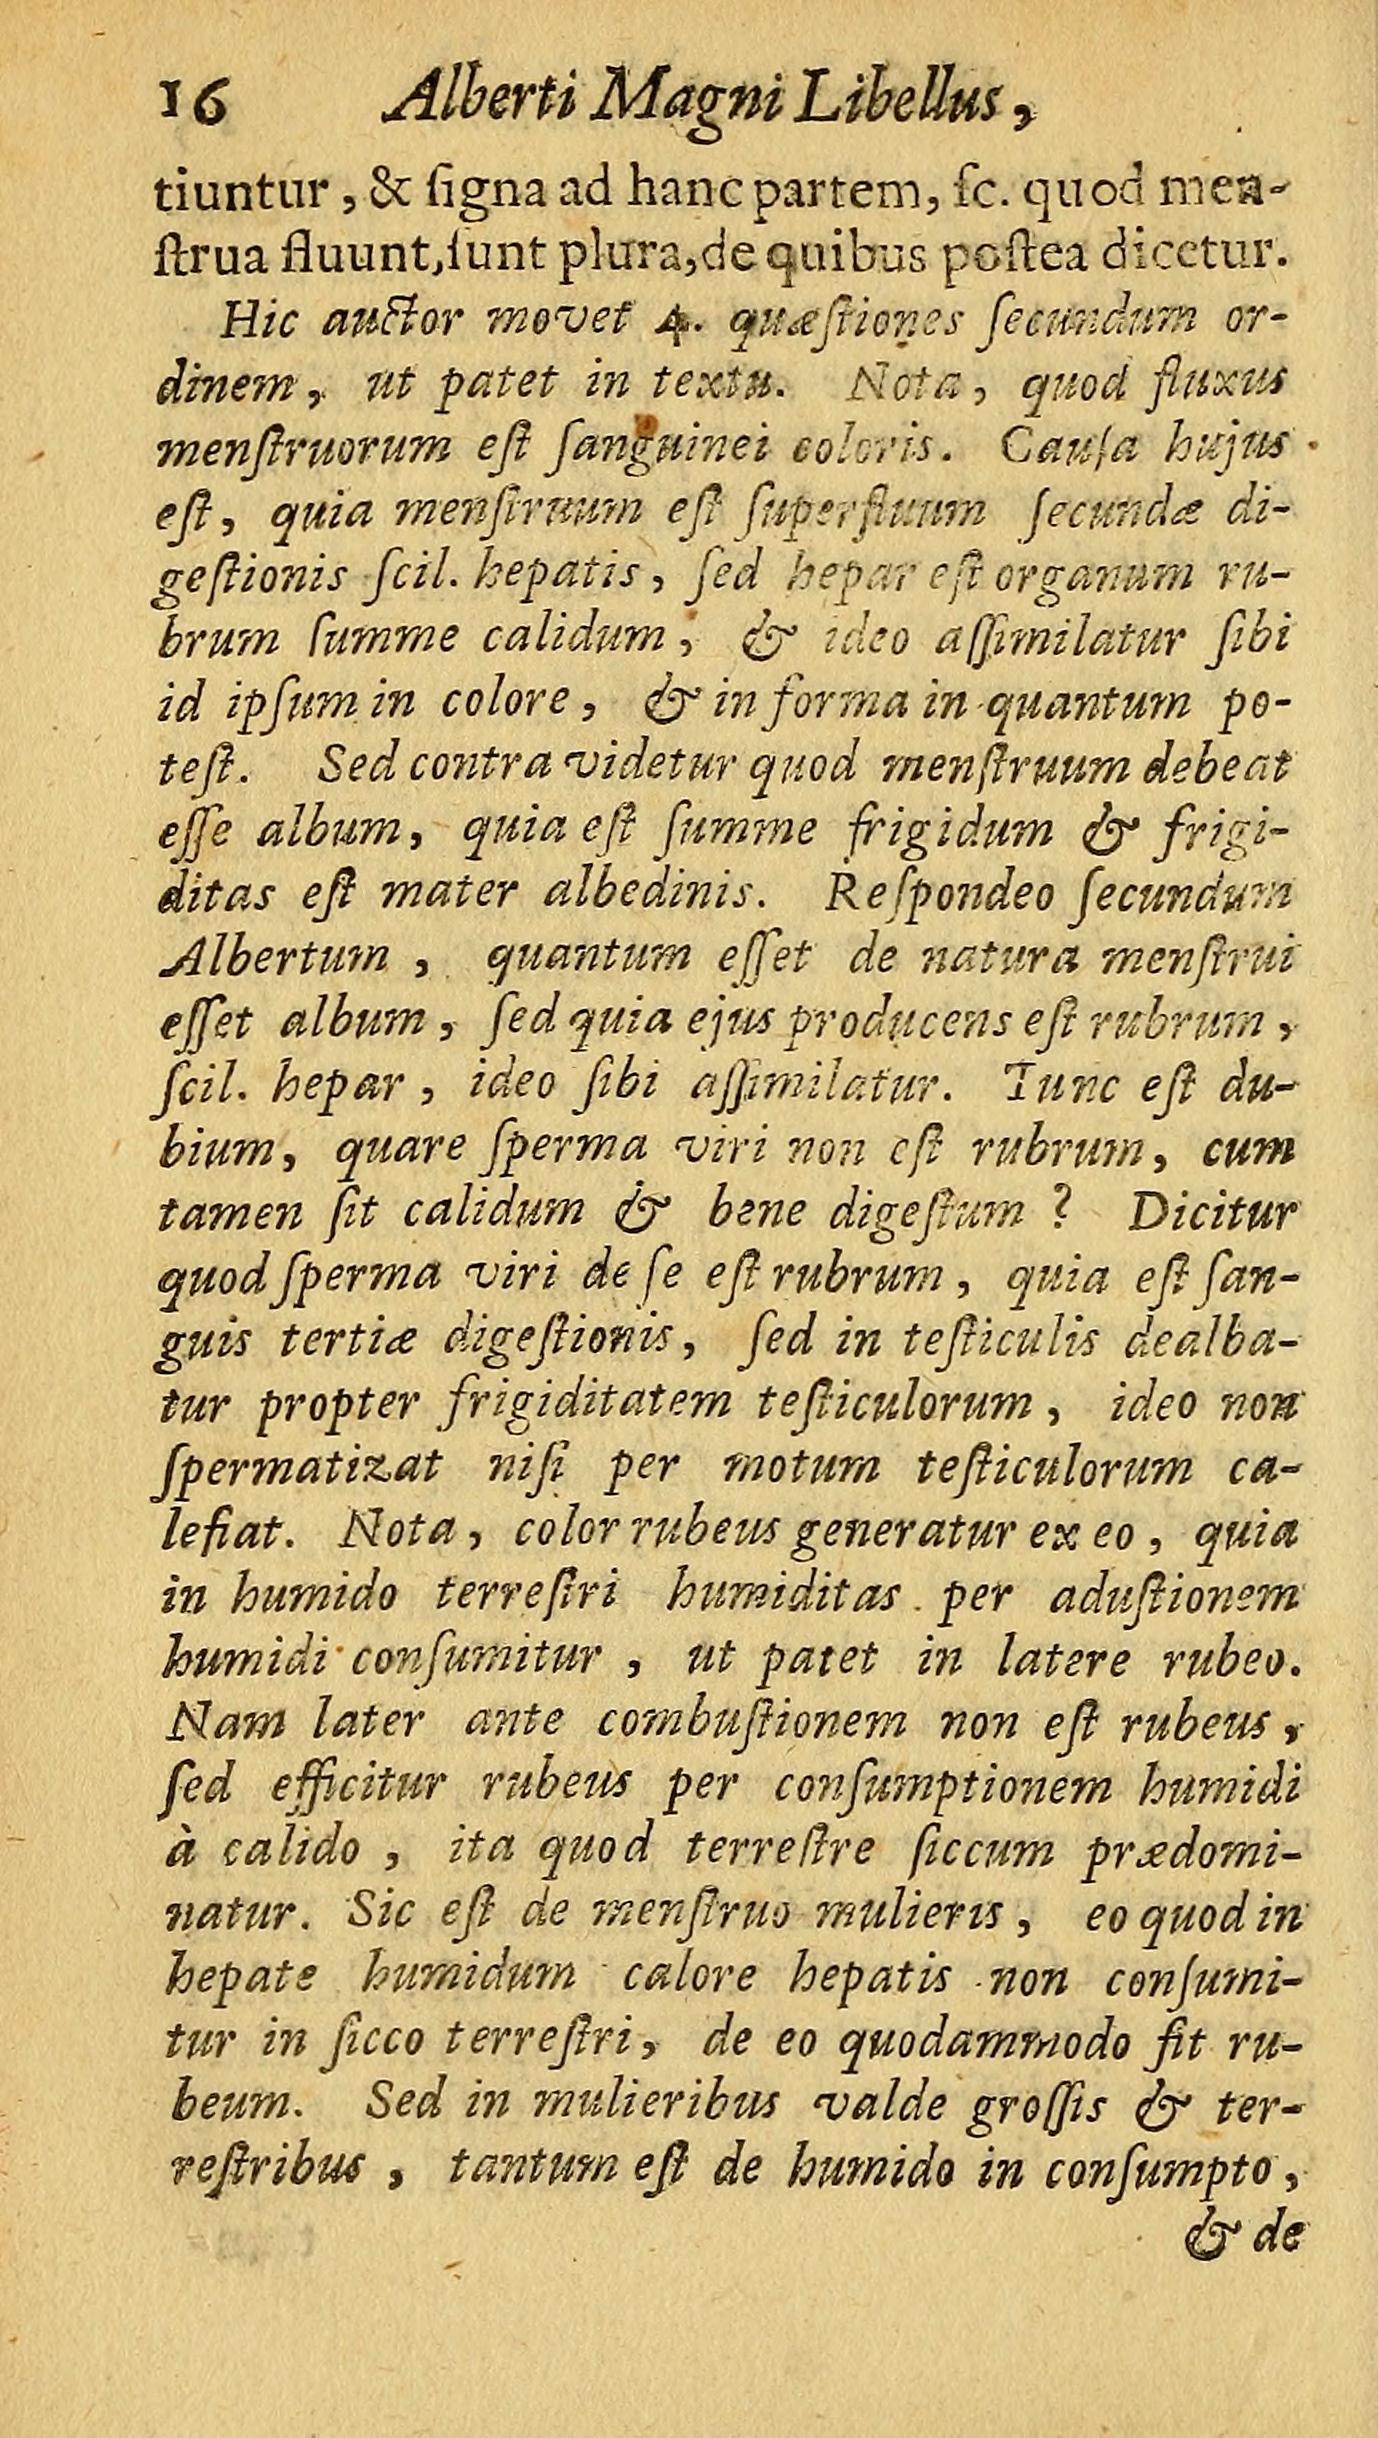 16 Alberti Magni Libellus,
tiuntur, & ſigna ad hanc partem, ſc. quod men-
ſtrua fluunt, ſunt plura, de quibus poſtea dicetur.
Hic auctor movet 4. quæſtiones ſecundum or-
dinem, ut patet in textu. Nota, quod fluxus
menſtruorum eſt ſanguinei coloris. Cauſa hujus
eſt, quia menſtruum eſt ſuperfluum ſecundæ di-
geſtionis ſcil. hepatis, ſed hepar eſt organum ru-
brum ſumme calidum, & ideo aſſimilatur ſibi
id ipſum in colore, & in forma in quantum po-
teſt. Sed contra videtur quod menſtruum debeat
eſſe album, quia eſt ſumme frigidum & frigi-
ditas eſt mater albedinis. Reſpondeo ſecundum
Albertum, quantum eſſet de natura menſtrui
eſſet album, ſed quia ejus producens eſt rubrum,
ſcil. hepar, ideo ſibi aſſimilatur. Tunc eſt du-
bium, quare ſperma viri non eſt rubrum, cum
tamen ſit calidum & bene digeſtum? Dicitur
quod ſperma viri de ſe eſt rubrum, quia eſt ſan-
guis tertiæ digeſtionis, ſed in teſticulis dealba-
tur propter frigiditatem teſticulorum, ideo non
ſpermatizat niſi per motum teſticulorum ca-
lefiat. Nota, color rubeus generatur ex eo, quia
in humido terreſtri humiditas per aduſtionem
humidi conſumitur, ut patet in latere rubeo.
Nam later ante combuſtionem non eſt rubeus,
ſed efficitur rubeus per conſumptionem humidi
à calido, ita quod terreſtre ſiccum prædomi-
natur. Sic eſt de menſtruo mulieris, eo quod in
hepate humidum calore hepatis non conſumi-
tur in ſicco terreſtri, de eo quodammodo fit ru-
beum. Sed in mulieribus valde groſſis & ter-
reſtribus, tantum eſt de humido in conſumpto,
& de